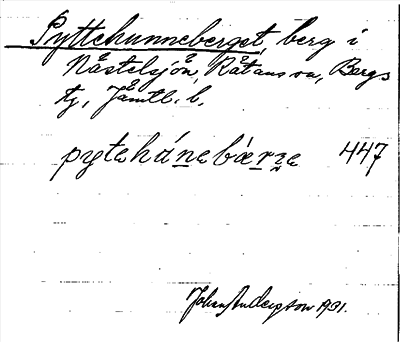 Pyttehunneberget, berg i
Nåstelsjön, Råtans sn, Bergs
tg, Jämtl. l.
pytehánebærze 447
Johan Anderzson 1931.